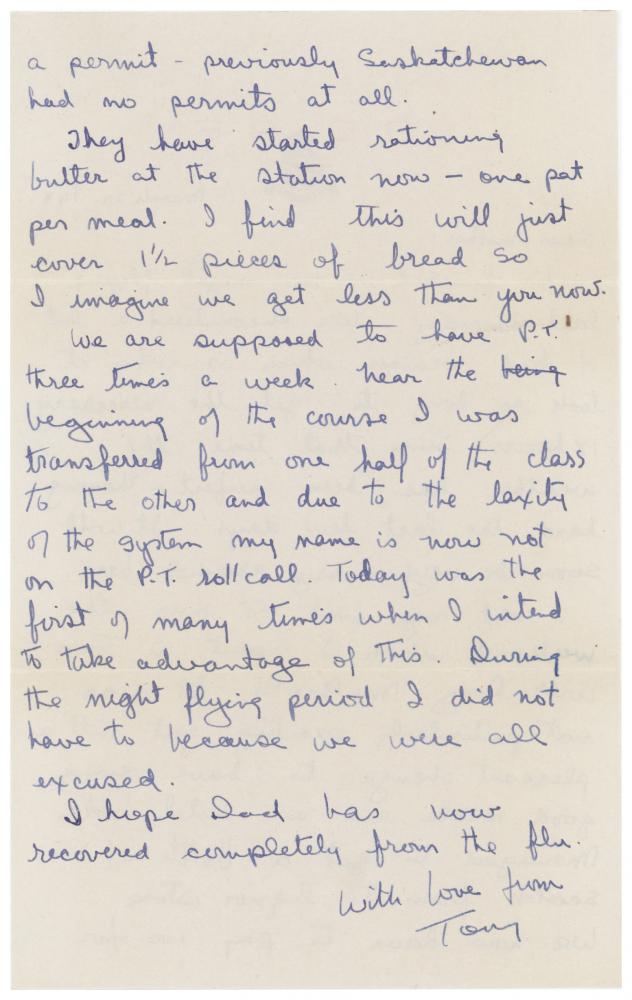 a permit - previously Saskatchewan
had no permits at all.
They have started rationing
butter at the station now - one pat
per meal. I find this will just
cover 1½ pieces of bread so
I imagine we get less than you now.
We are supposed to have P.T.
three times a week. Near the being
beginning of the course I was
transferred from one half of the class
to the other and due to the laxity
of the system my name is now not
on the P.T. roll call. Today was the
first of many times when I intend
to take advantage of this. During
the night flying period I did not
have to because we were all
excused.
I hope Dad has now
recovered completely from the flu.
With love from
Tony